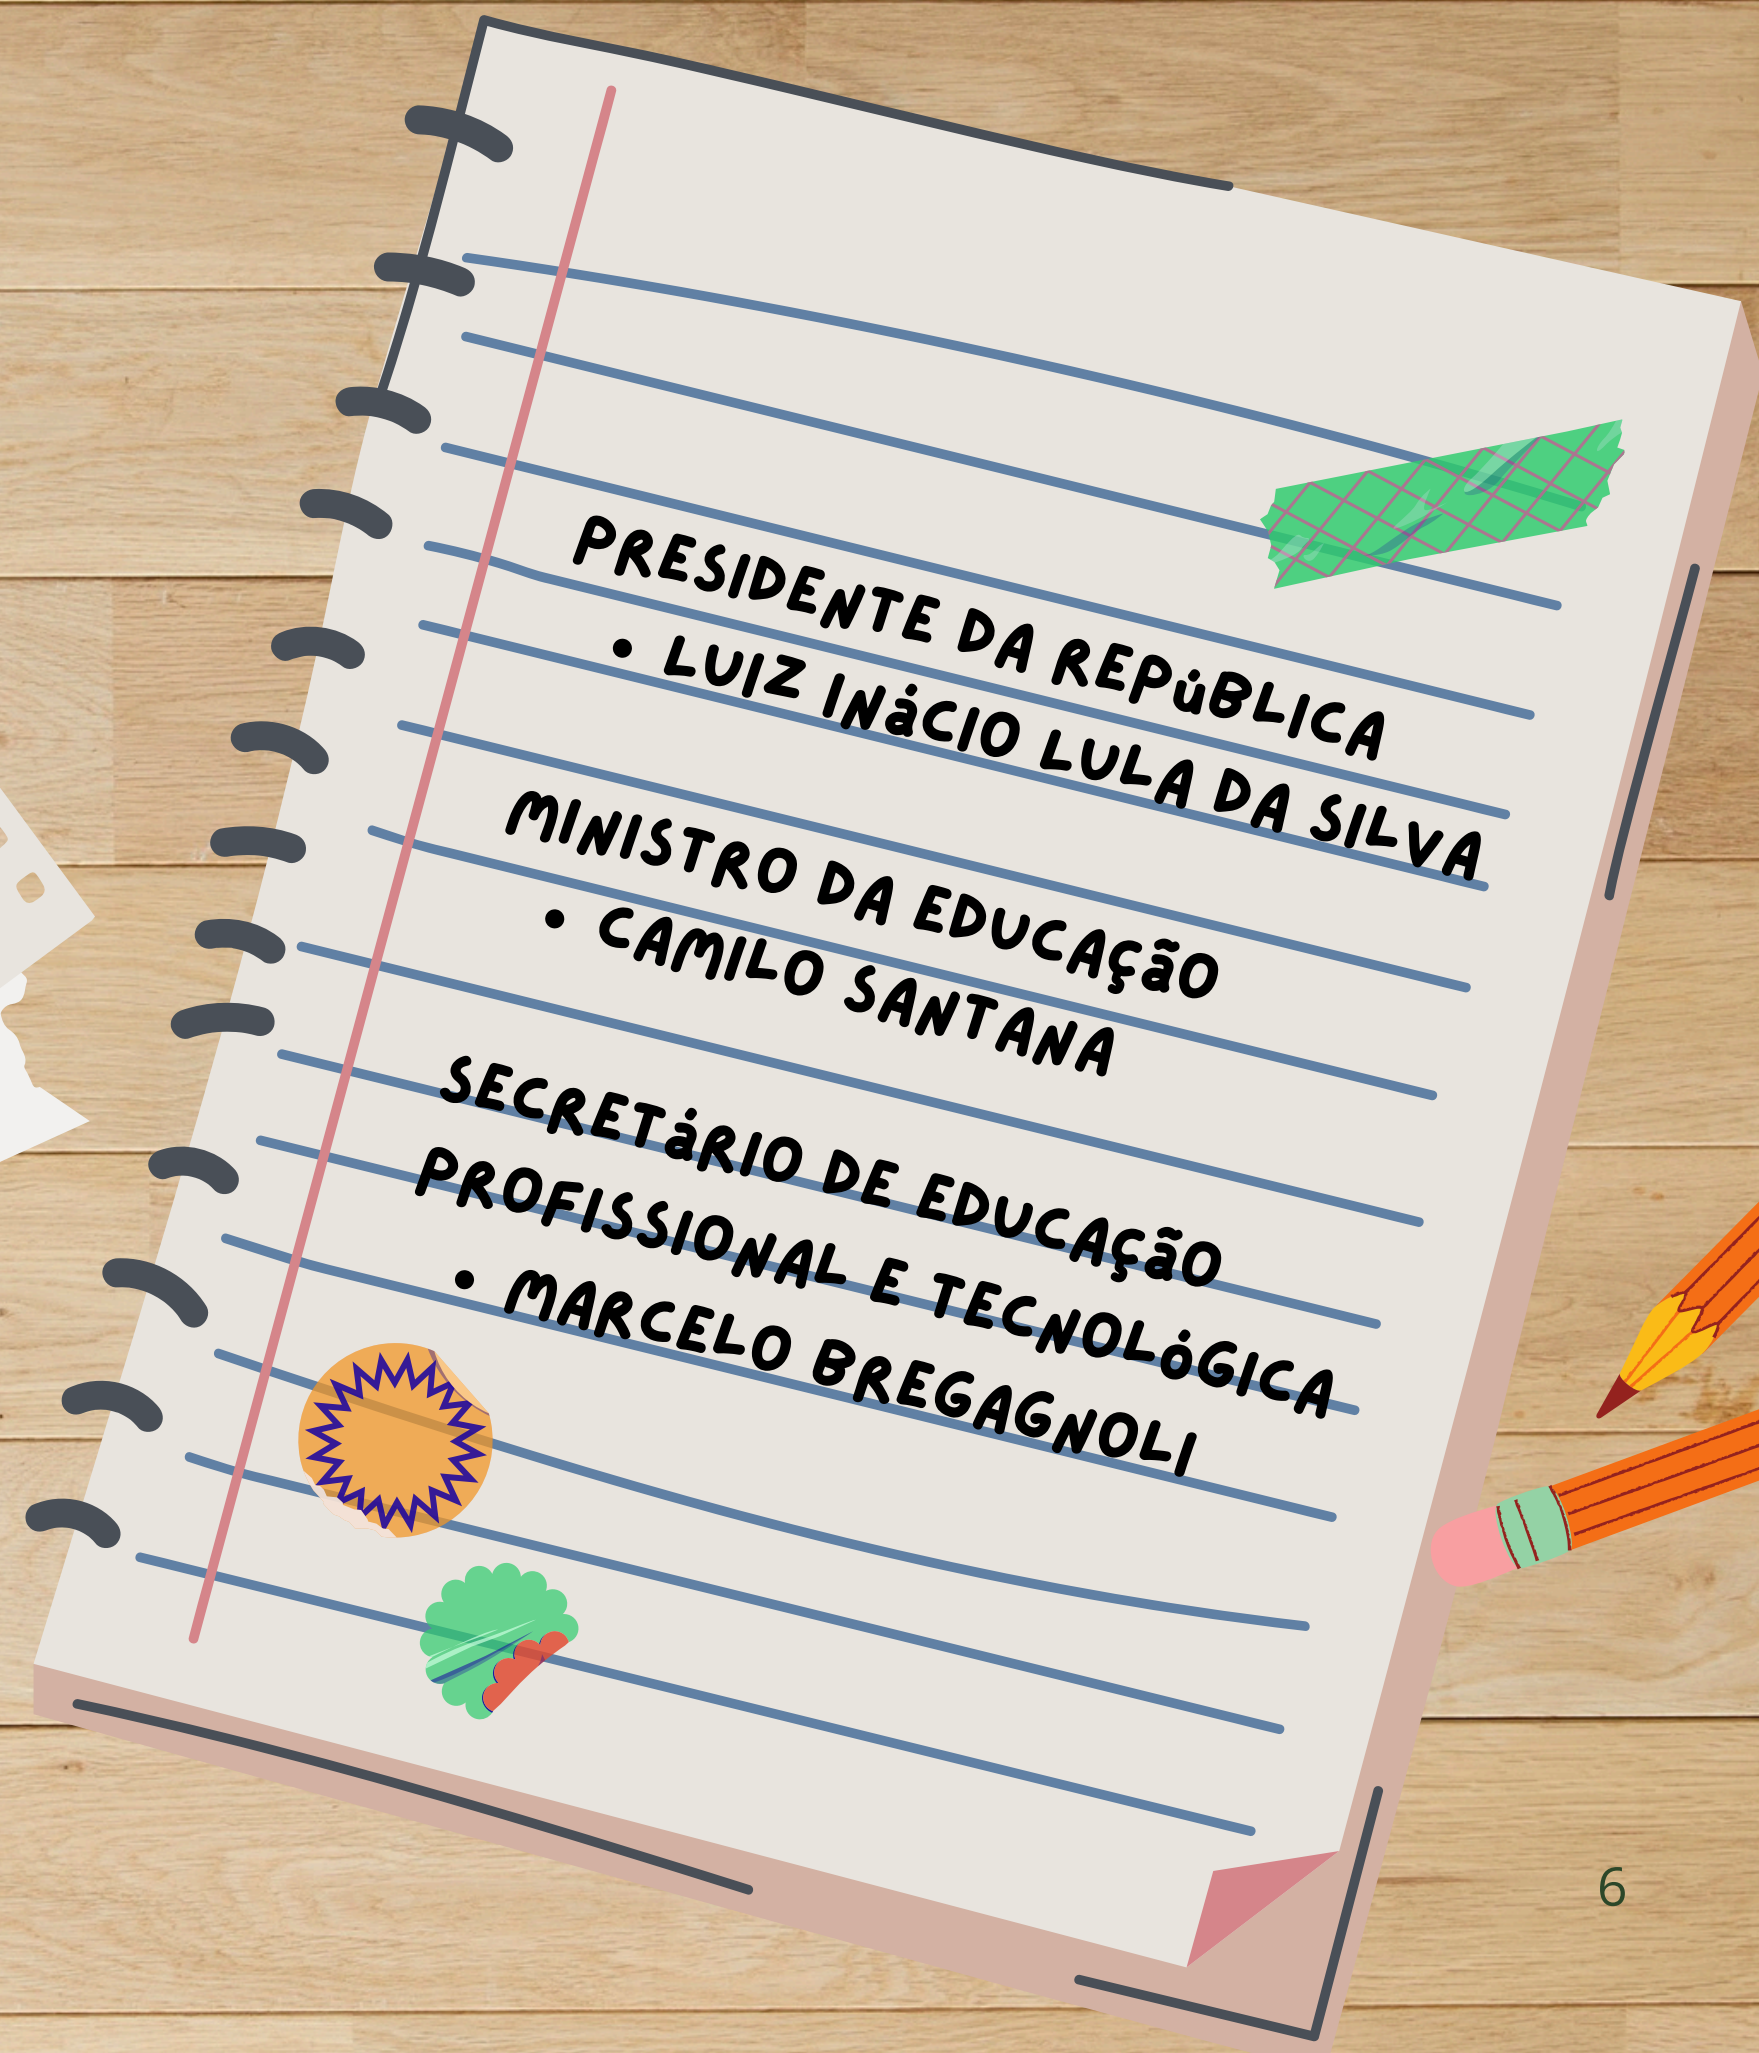 PRESIDENTE DA REPÚBLICA
• LUIZ INÁCIO LULA DA SILVA
MINISTRO DA EDUCAÇÃO
• CAMILO SANTANA
SECRETÁRIO DE EDUCAÇÃO
PROFISSIONAL E TECNOLÓGICA
• MARCELO BREGAGNOLI
6